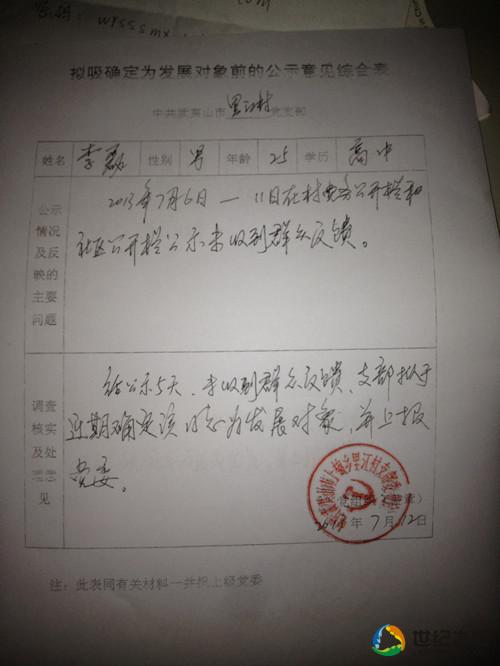 拟吸确定为发展对象前的公示意见综合表
中共武夷山市里江村党支部
姓名 李磊 性别 男 年龄 25 学历 高中
公示情况及反映的主要问题
2013年7月6日—11日在村党务公开栏和
社区公开栏公示未收到群众反馈。
调查核实及处理意见
经公示5天，未收到群众反馈，支部拟于
近期确定该同志为发展对象，并上报
党委。
2013年7月12日
注：此表同有关材料一共报上级党委
世纪